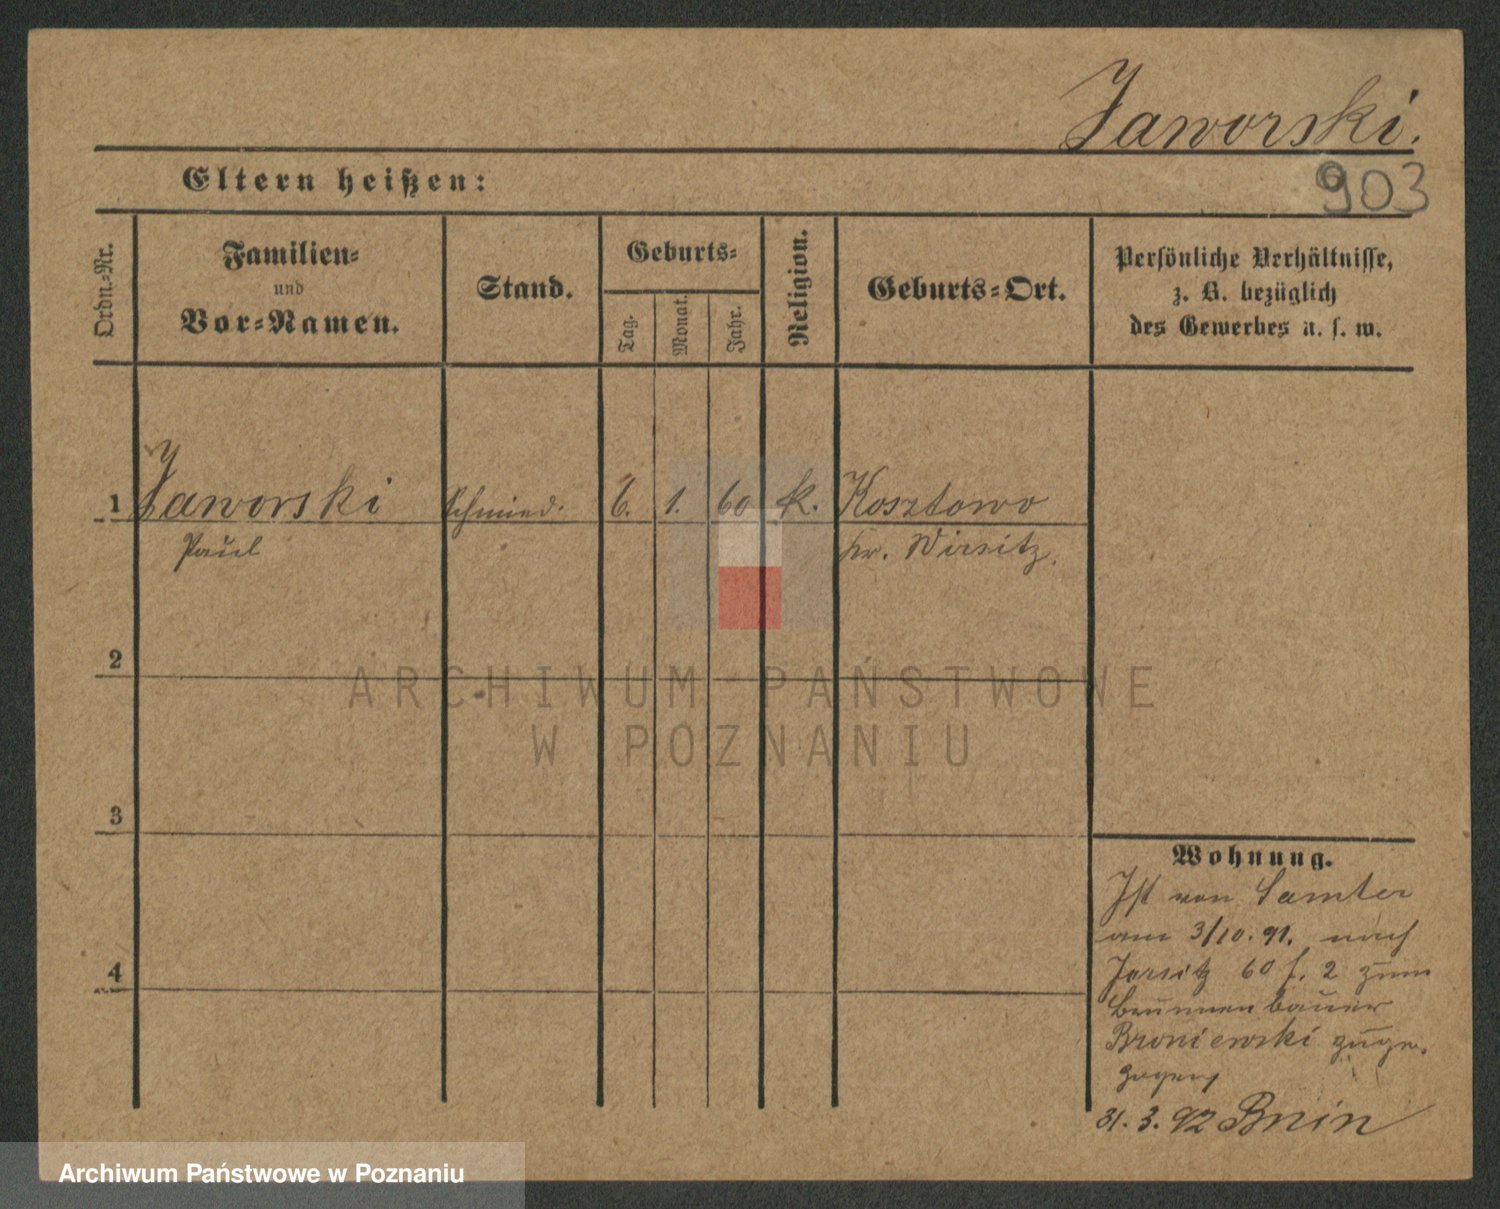 Jaworski.
903
Eltern heißen:
Ordn.-Nr.
Familien-
und
Vor-Namen.
Stand.
Geburts-
Tag.
Monat.
Jahr.
Religion.
Geburts-Ort.
Persönliche Verhältnisse,
z. B. bezüglich
des Gewerbes u. s. w.
1 Jaworski Schmied. 6. 1. 60 k. Kosztowo
Paul Kr. Wirsitz.
2
3
4
Wohnung.
Ist von Samter
am 3/10. 91. nach
Jersitz 60 f. 2 zum
Brunnenbauer
Broniewski zuge-
zogen
31. 3. 92 Bnin
ARCHIWUM PAŃSTWOWE
W POZNANIU
Archiwum Państwowe w Poznaniu